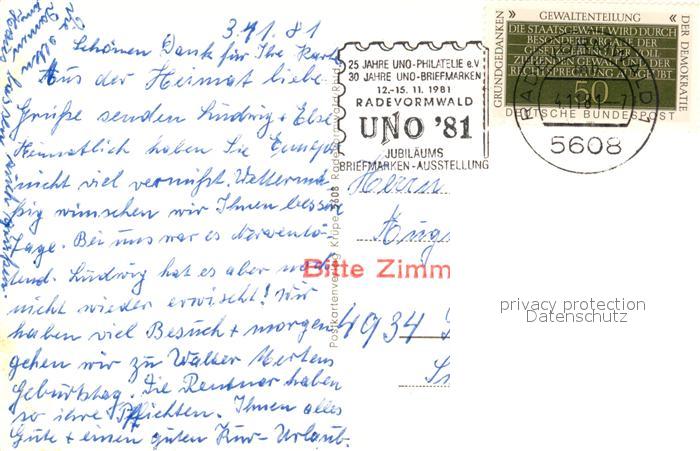 3.11.81
Schönen Dank für Ihre Karte
Aus der Heimat liebe
Grüße senden Ludwig + Else
Heimatlich haben Sie
nicht viel vermißt. Wettermä-
ßig wünschen wir Ihnen bessere
Tage. Bei uns war es
Ludwig hat es aber
nicht wieder erwischt! Wir
haben viel Besuch + morgen
gehen wir zu Walter Mertens
Geburtstag. Die Rentner haben
so ihre Pflichten. Ihnen alles
Gute + einen guten Kur-Urlaub.
Die alten
Damen
lassen auch grüßen.
Postkartenverlag Krüpe, 5608
25 JAHRE UNO-PHILATELIE e.V
30 JAHRE UNO-BRIEFMARKEN
12.-15. 11. 1981
RADEVORMWALD
UNO '81
JUBILÄUMS
BRIEFMARKEN-AUSSTELLUNG
GRUNDGEDANKEN
» GEWALTENTEILUNG «
DER DEMOKRATIE
DIE STAATSGEWALT WIRD DURCH
BESONDERE ORGANE DER
GESETZGEBUNG DER VOLL
ZIEHENDEN GEWALT UND DER
RECHTSPRECHUNG AUSGEÜBT
50
DEUTSCHE BUNDESPOST
5608
Herrn
Aug
Bitte Zimm
4934
privacy protection
Datenschutz